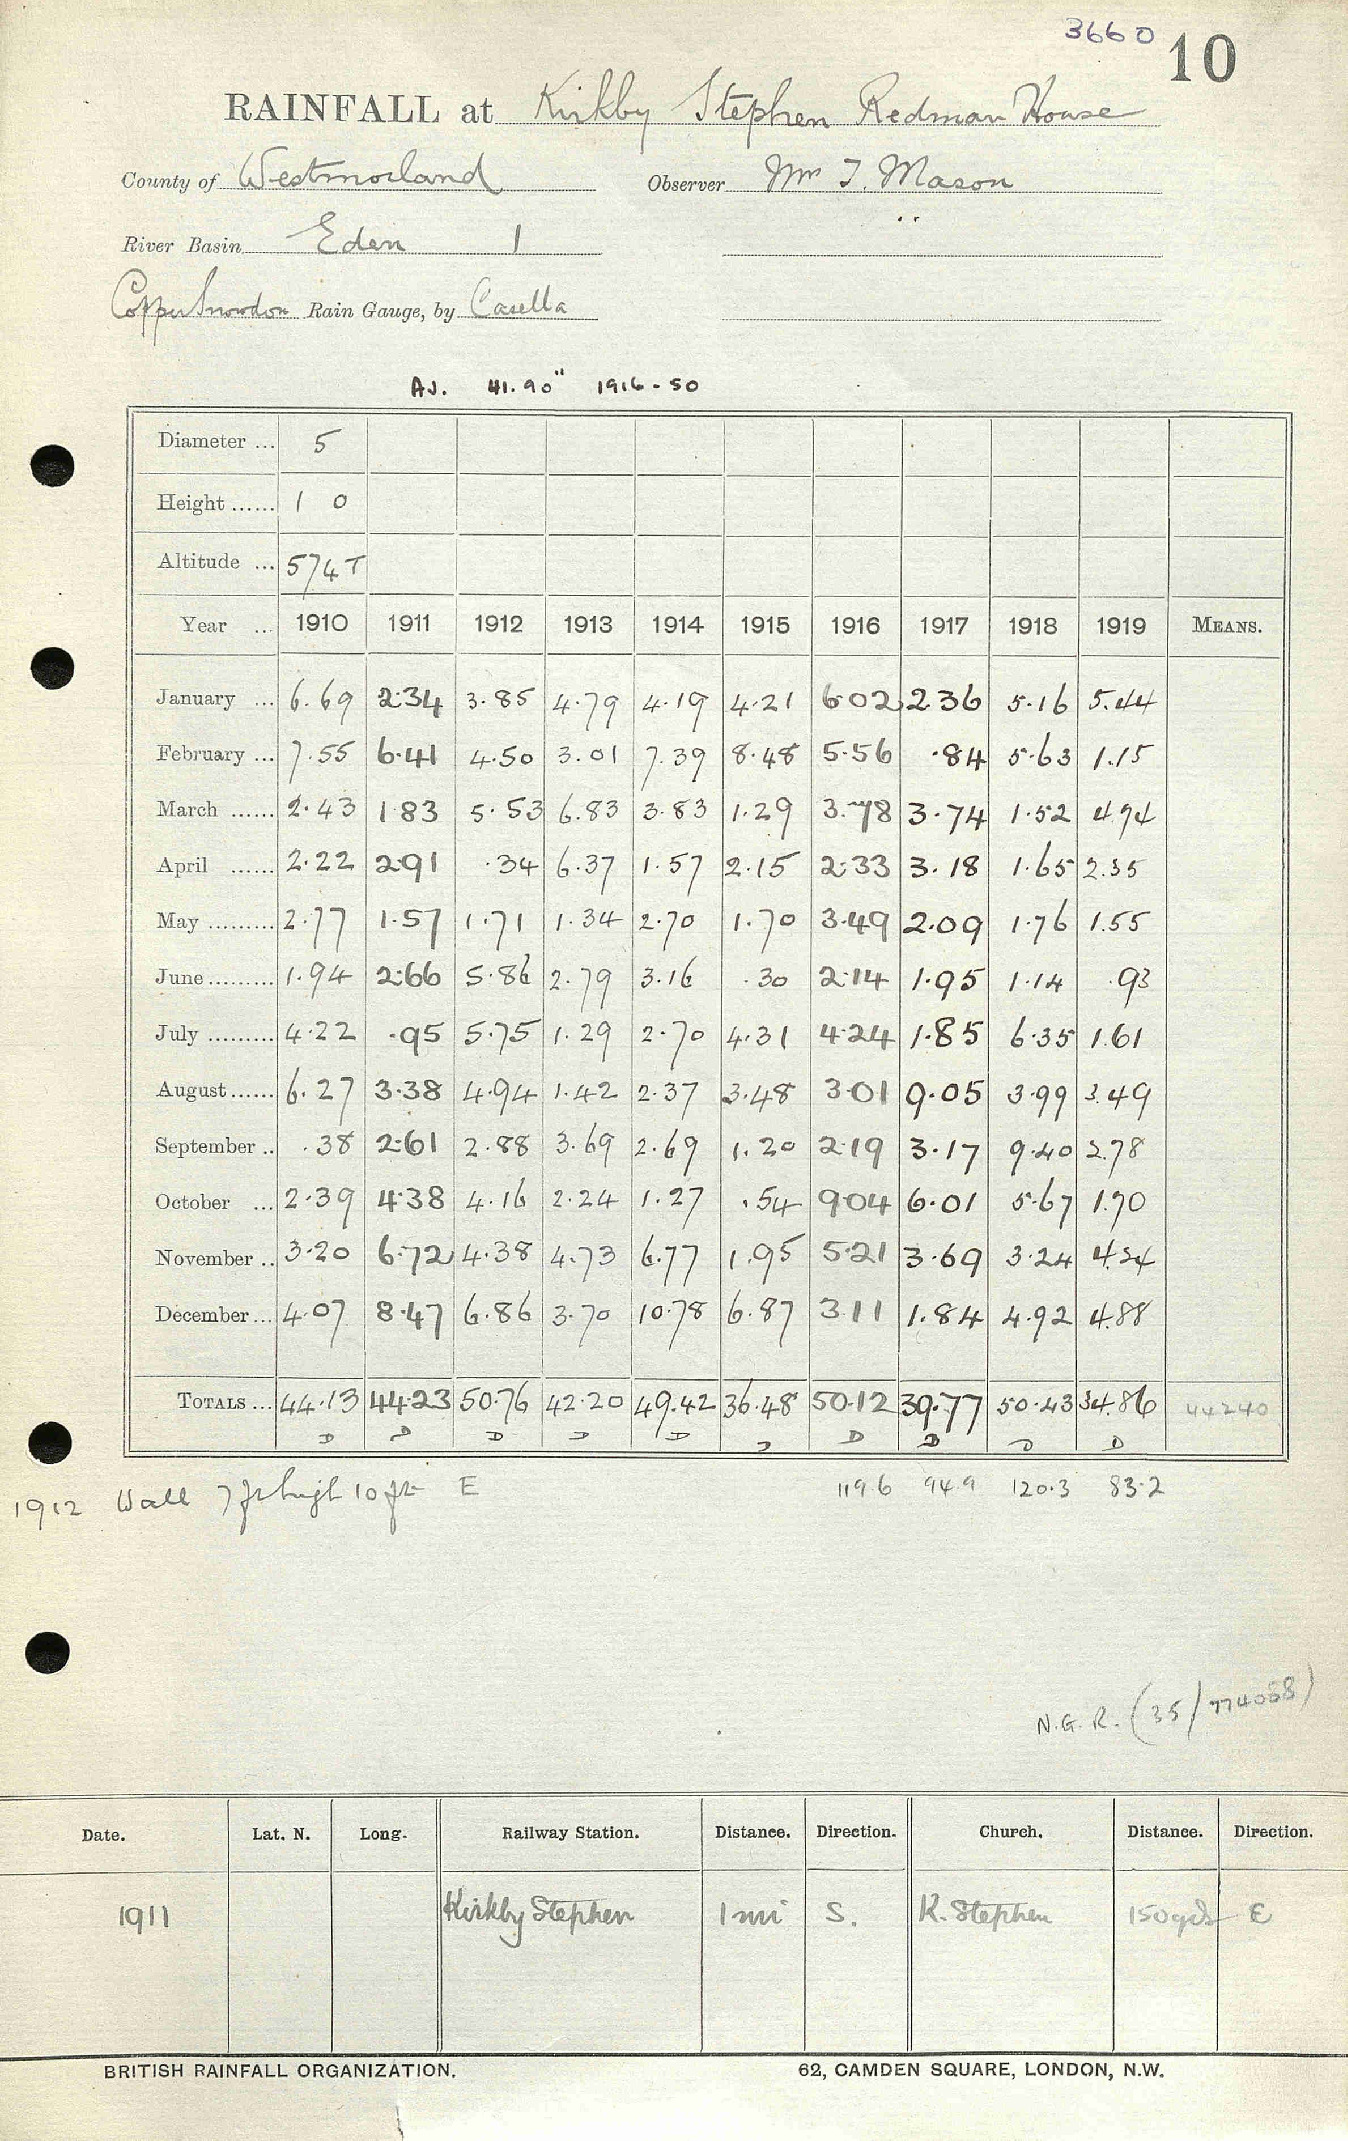 3660 10
RAINFALL at Kirkby Stephen Redman House
County of Westmorland Observer Mr T. Mason
River Basin Eden 1
Copper Snowdon Rain Gauge, by Casella
Av. 41.90" 1916-50
Diameter ... 5
Height ...... 1 0
Altitude ... 574 T
Year ... 1910 1911 1912 1913 1914 1915 1916 1917 1918 1919 MEANS.
January ... 6.69 2.34 3.85 4.79 4.19 4.21 6.02 2.36 5.16 5.44
February ... 7.55 6.41 4.50 3.01 7.39 8.48 5.56 .84 5.63 1.15
March ...... 2.43 1.83 5.53 6.83 3.83 1.29 3.78 3.74 1.52 4.74
April ...... 2.22 2.91 .34 6.37 1.57 2.15 2.33 3.18 1.65 2.35
May ......... 2.77 1.57 1.71 1.34 2.70 1.70 3.49 2.09 1.76 1.55
June ......... 1.94 2.66 5.86 2.79 3.16 .30 2.14 1.95 1.14 .93
July ......... 4.22 .95 5.75 1.29 2.70 4.31 4.24 1.85 6.35 1.61
August ...... 6.27 3.38 4.94 1.42 2.37 3.48 3.01 9.05 3.99 3.49
September .. .38 2.61 2.88 3.69 2.69 1.20 2.19 3.17 9.40 2.78
October ... 2.39 4.38 4.16 2.24 1.27 .54 9.04 6.01 5.67 1.70
November .. 3.20 6.72 4.38 4.73 6.77 1.95 5.21 3.69 3.24 4.24
December ... 4.07 8.47 6.86 3.70 10.78 6.87 3.11 1.84 4.92 4.88
TOTALS ... 44.13 44.23 50.76 42.20 49.42 36.48 50.12 39.77 50.43 34.86 44240
D D D D D D D D D D
1912 Wall 7 ft high 10 ft E 119.6 94.9 120.3 83.2
N.G.R. (35/774088)
Date. Lat. N. Long. Railway Station. Distance. Direction. Church. Distance. Direction.
1911 Kirkby Stephen 1 mi S. K. Stephen 150 yds E
BRITISH RAINFALL ORGANIZATION. 62, CAMDEN SQUARE, LONDON, N.W.